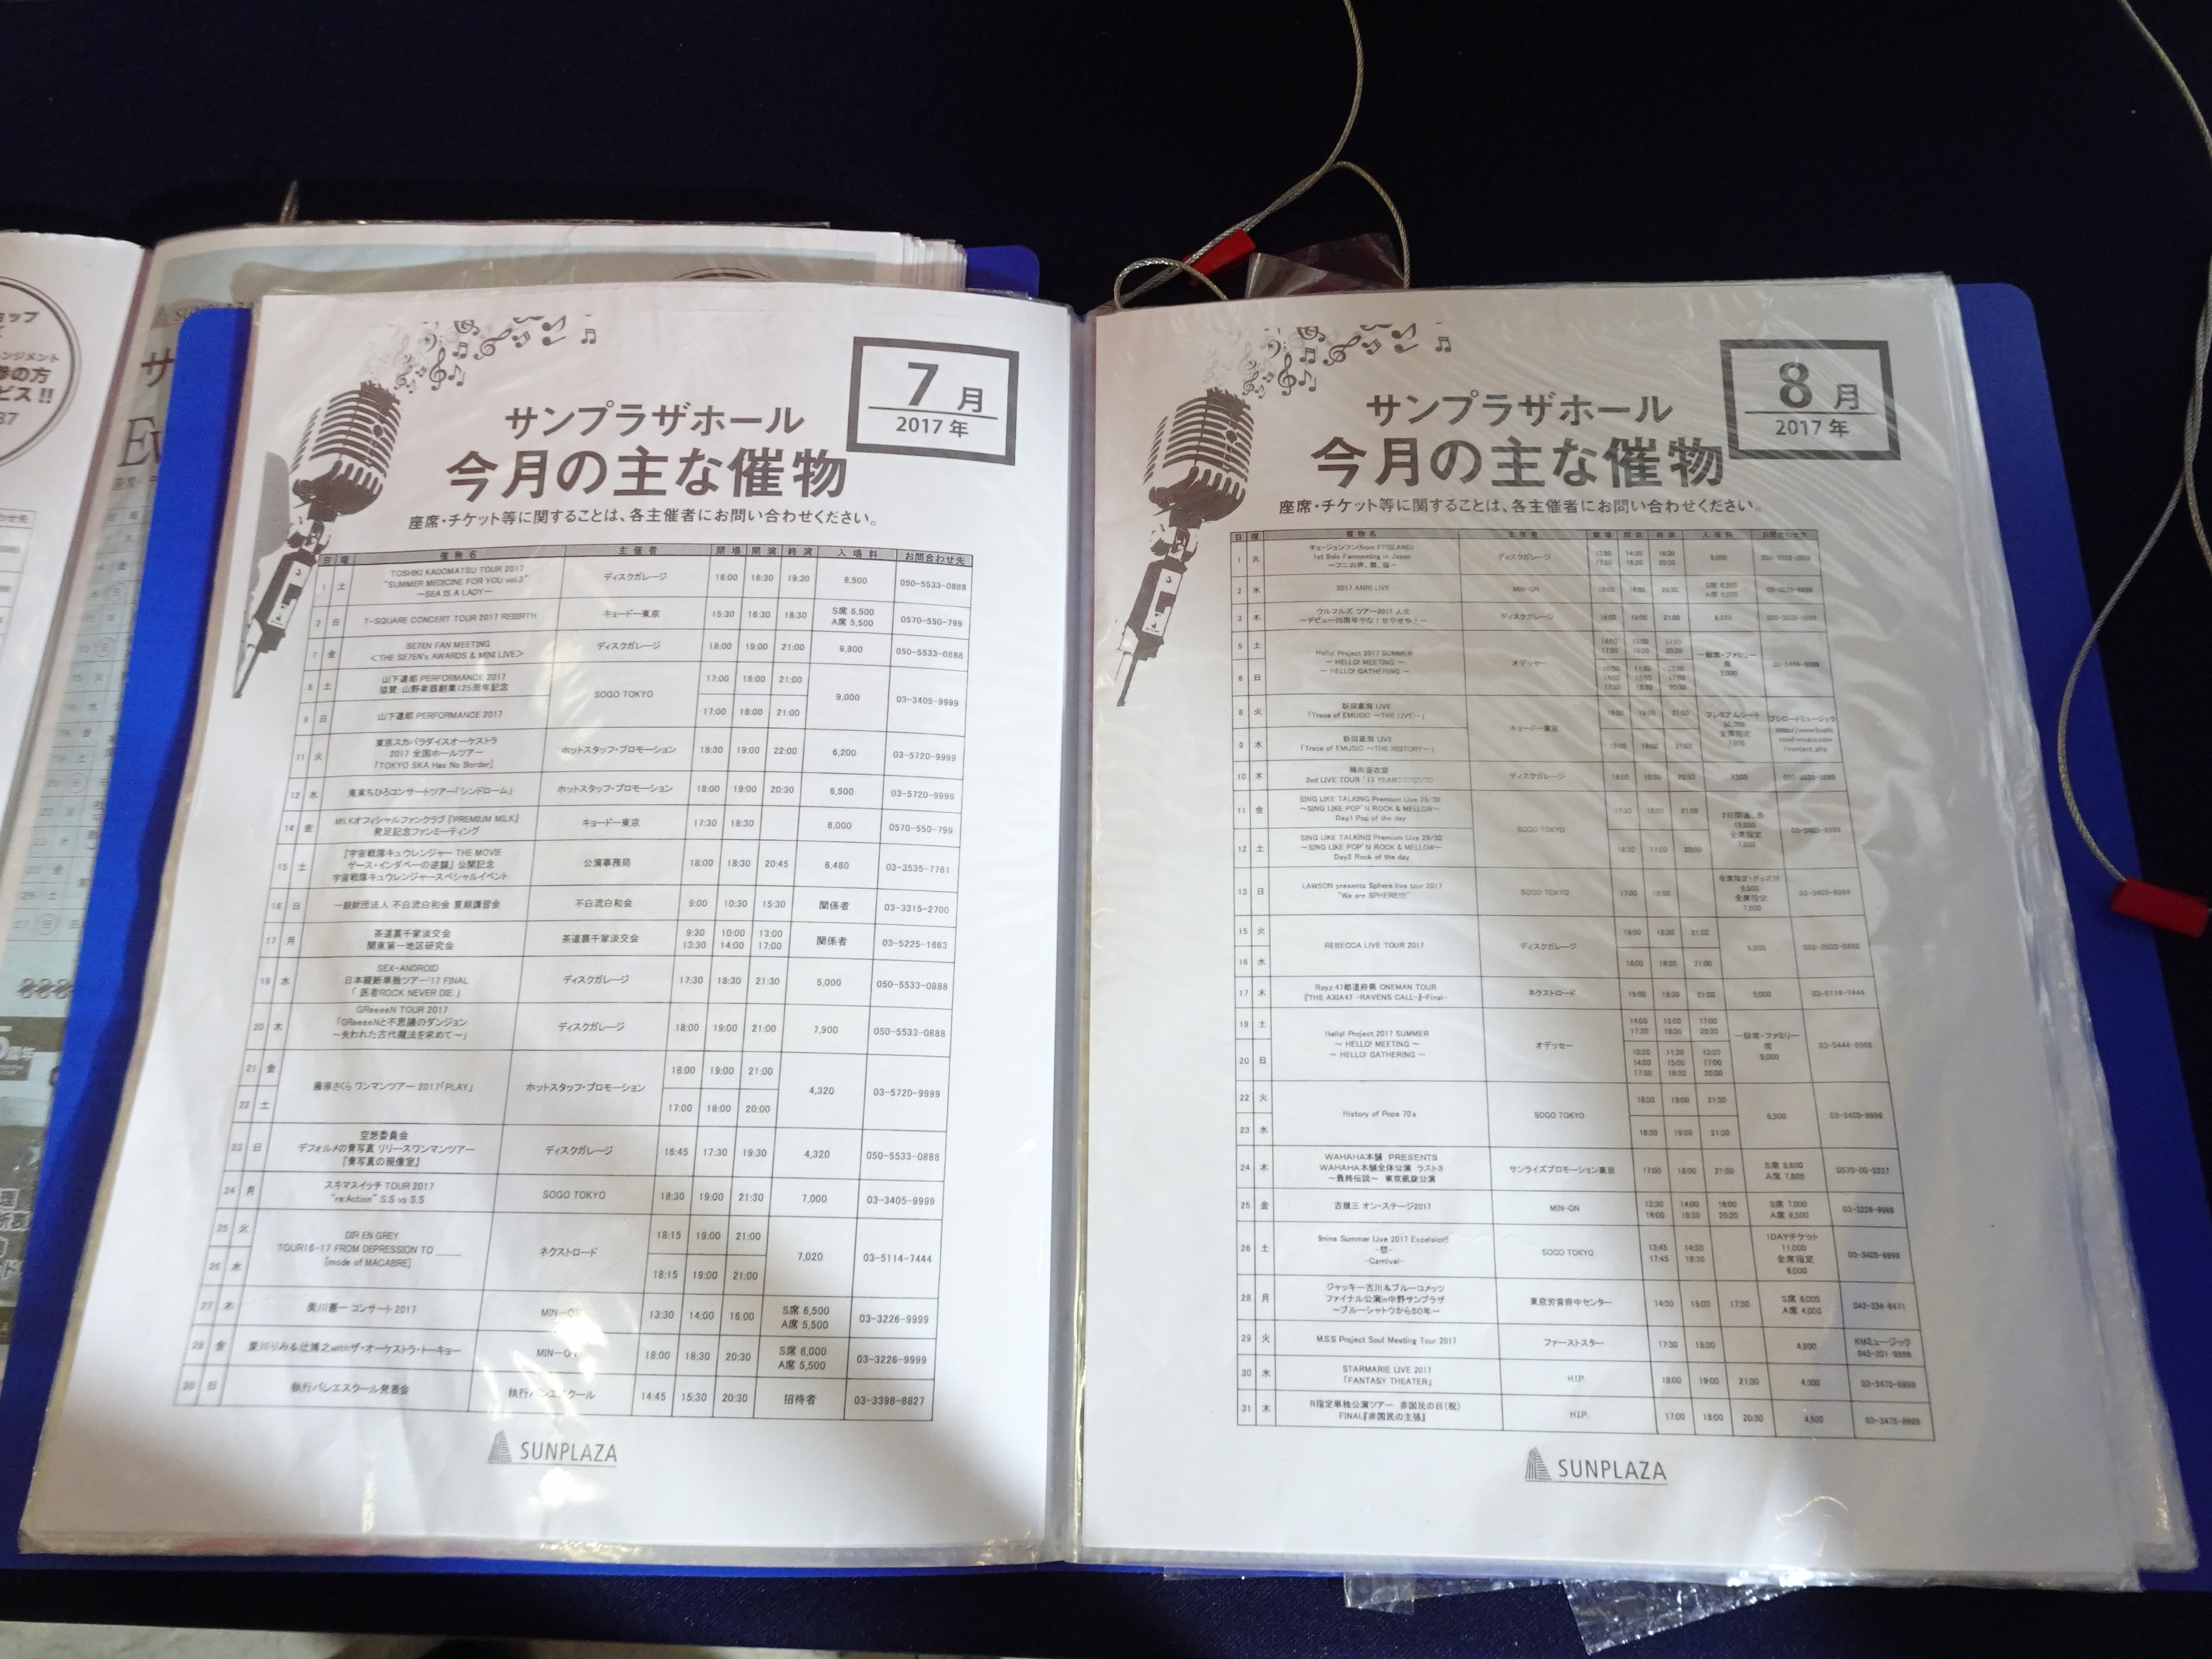 7月
2017年
サンプラザホール
今月の主な催物
座席・チケット等に関することは、各主催者にお問い合わせください。
日 曜 催物名 主催者 開場 開演 終演 入場料 お問合わせ先
1 土 TOSHIKI KADOMATSU TOUR 2017
"SUMMER MEDICINE FOR YOU vol.3"
～SEA IS A LADY～ ディスクガレージ 16:00 16:30 19:30 8,500 050-5533-0888
2 日 T-SQUARE CONCERT TOUR 2017 REBIRTH キョードー東京 15:30 16:30 18:30 S席 6,500
A席 5,500 0570-550-799
7 金 SE7EN FAN MEETING
＜THE SE7EN's AWARDS & MINI LIVE＞ ディスクガレージ 18:00 19:00 21:00 9,800 050-5533-0888
8 土 山下達郎 PERFORMANCE 2017
協賛:山野楽器創業125周年記念 SOGO TOKYO 17:00 18:00 21:00 9,000 03-3405-9999
9 日 山下達郎 PERFORMANCE 2017 17:00 18:00 21:00
11 火 東京スカパラダイスオーケストラ
2017 全国ホールツアー
「TOKYO SKA Has No Border」 ホットスタッフ・プロモーション 18:30 19:00 22:00 6,200 03-5720-9999
12 水 鬼束ちひろコンサートツアー「シンドローム」 ホットスタッフ・プロモーション 18:00 19:00 20:30 6,500 03-5720-9999
14 金 M!LKオフィシャルファンクラブ『PREMIUM MILK』
発足記念ファンミーティング キョードー東京 17:30 18:30 6,000 0570-550-799
15 土 『宇宙戦隊キュウレンジャー THE MOVIE
ゲース・インダベーの逆襲』公開記念
宇宙戦隊キュウレンジャースペシャルイベント 公演事務局 18:00 18:30 20:45 6,480 03-3535-7761
16 日 一般財団法人 不白流白和会 夏期講習会 不白流白和会 9:00 10:30 15:30 関係者 03-3315-2700
17 月 茶道裏千家淡交会
関東第一地区研究会 茶道裏千家淡交会 9:30 10:00 13:00
13:30 14:00 17:00 関係者 03-5225-1663
19 水 SEX-ANDROID
日本縦断単独ツアー'17 FINAL
「 医者ROCK NEVER DIE 」 ディスクガレージ 17:30 18:30 21:30 5,000 050-5533-0888
20 木 GReeeeN TOUR 2017
「GReeeeNと不思議のダンジョン
～失われた古代魔法を求めて～」 ディスクガレージ 18:00 19:00 21:00 7,900 050-5533-0888
21 金 藤原さくら ワンマンツアー 2017「PLAY」 ホットスタッフ・プロモーション 18:00 19:00 21:00 4,320 03-5720-9999
22 土 17:00 18:00 20:00
23 日 空想委員会
デフォルメの青写真 リリースワンマンツアー
『青写真の現像室』 ディスクガレージ 16:45 17:30 19:30 4,320 050-5533-0888
24 月 スキマスイッチ TOUR 2017
"re:Action" S.S vs S.S SOGO TOKYO 18:30 19:00 21:30 7,000 03-3405-9999
25 火 DIR EN GREY
TOUR16-17 FROM DEPRESSION TO ____
[mode of MACABRE] ネクストロード 18:15 19:00 21:00 7,020 03-5114-7444
26 水 18:15 19:00 21:00
27 木 美川憲一 コンサート 2017 MIN-ON 13:30 14:00 16:00 S席 6,500
A席 5,500 03-3226-9999
28 金 夏川りみ&辻博之withザ・オーケストラ・トーキョー MIN-ON 18:00 18:30 20:30 S席 6,000
A席 5,500 03-3226-9999
30 日 執行バレエスクール発表会 執行バレエスクール 14:45 15:30 20:30 招待者 03-3398-8827
SUNPLAZA
8月
2017年
サンプラザホール
今月の主な催物
座席・チケット等に関することは、各主催者にお問い合わせください。
日 曜 催物名 主催者 開場 開演 終演 入場料 お問合わせ先
1 火 チェ・ジョンフン(from FTISLAND)
1st Solo Fanmeeting in Japan ディスクガレージ 9,000 050-5533-0888
2 水 2017 ANRI LIVE MIN-ON 03-3226-9999
3 木 ウルフルズ ツアー2017 人生
～デビュー25周年やな！せやせや！～ ディスクガレージ 18:00 19:00 21:00 050-5533-0888
5 土 Hello! Project 2017 SUMMER
～ HELLO! MEETING ～
～ HELLO! GATHERING ～ オデッセー 一般席・ファミリー席 03-5444-6988
6 日
8 火 新田恵海 LIVE
「Trace of EMUSIC ～THE LIVE～」 キョードー東京 プレミアムシート
全席指定 ブシロードミュージック
9 水 新田恵海 LIVE
「Trace of EMUSIC ～THE HISTORY～」
10 木 2nd LIVE TOUR ディスクガレージ 7,500 050-5533-0888
11 金 SING LIKE TALKING Premium Live 29/30
～SING LIKE POP'N ROCK & MELLOW～
Day1 Pop of the day SOGO TOKYO 17:30 18:00 21:00 03-3405-9999
12 土 SING LIKE TALKING Premium Live 29/30
～SING LIKE POP'N ROCK & MELLOW～
Day2 Rock of the day 全席指定
13 日 LAWSON presents Sphere live tour 2017
"We are SPHERE!!!!" SOGO TOKYO 17:00 18:00 全席指定・グッズ付
全席指定
7,500 03-3405-9999
15 火 REBECCA LIVE TOUR 2017 ディスクガレージ 18:00 18:30 21:00 050-5533-0888
16 水 18:00 18:30 21:00
17 木 Royz 47都道府県 ONEMAN TOUR
『THE AXIA47 -RAVENS CALL-』-Final- ネクストロード 18:00 18:30 21:00 5,000 03-5114-7444
19 土 Hello! Project 2017 SUMMER
～ HELLO! MEETING ～
～ HELLO! GATHERING ～ オデッセー 14:00 15:00 17:00
17:30 18:30 20:30 一般席・ファミリー席 03-5444-6988
20 日 10:30 11:30 13:30
14:00 15:00 17:00
17:30 18:30 20:30
22 火 History of Pops 70's SOGO TOKYO 8,500 03-3405-9999
23 水 18:00 19:00 21:00
24 木 WAHAHA本舗 PRESENTS
WAHAHA本舗全体公演 ラスト3
～最終伝説～ 東京凱旋公演 サンライズプロモーション東京 17:00 18:00 21:00 0570-00-3337
25 金 吉幾三 オン・ステージ2017 MIN-ON S席 7,000
A席 6,500 03-3226-9999
26 土 8mina Summer Live 2017 Excelsior!!
-祭-
-Carnival- SOGO TOKYO 13:45 14:30
17:45 18:30 1DAYチケット
11,000
全席指定
6,000 03-3405-9999
28 月 ジャッキー吉川&ブルーコメッツ
ファイナル公演in中野サンプラザ
～ブルーシャトウから50年～ 東京労音府中センター 14:30 15:00 17:30 S席 6,000
A席 4,000 042-334-8471
29 火 M.S.S Project Soul Meeting Tour 2017 ファーストスター 17:30 18:30 4,800 KMミュージック
045-201-9999
30 水 STARMARIE LIVE 2017
「FANTASY THEATER」 H.I.P. 19:00 21:30 4,000 03-3475-9999
31 木 R指定単独公演ツアー 非国民の日(祝)
FINAL『非国民の主張』 H.I.P. 17:00 18:00 20:30 4,500 03-3475-9999
SUNPLAZA